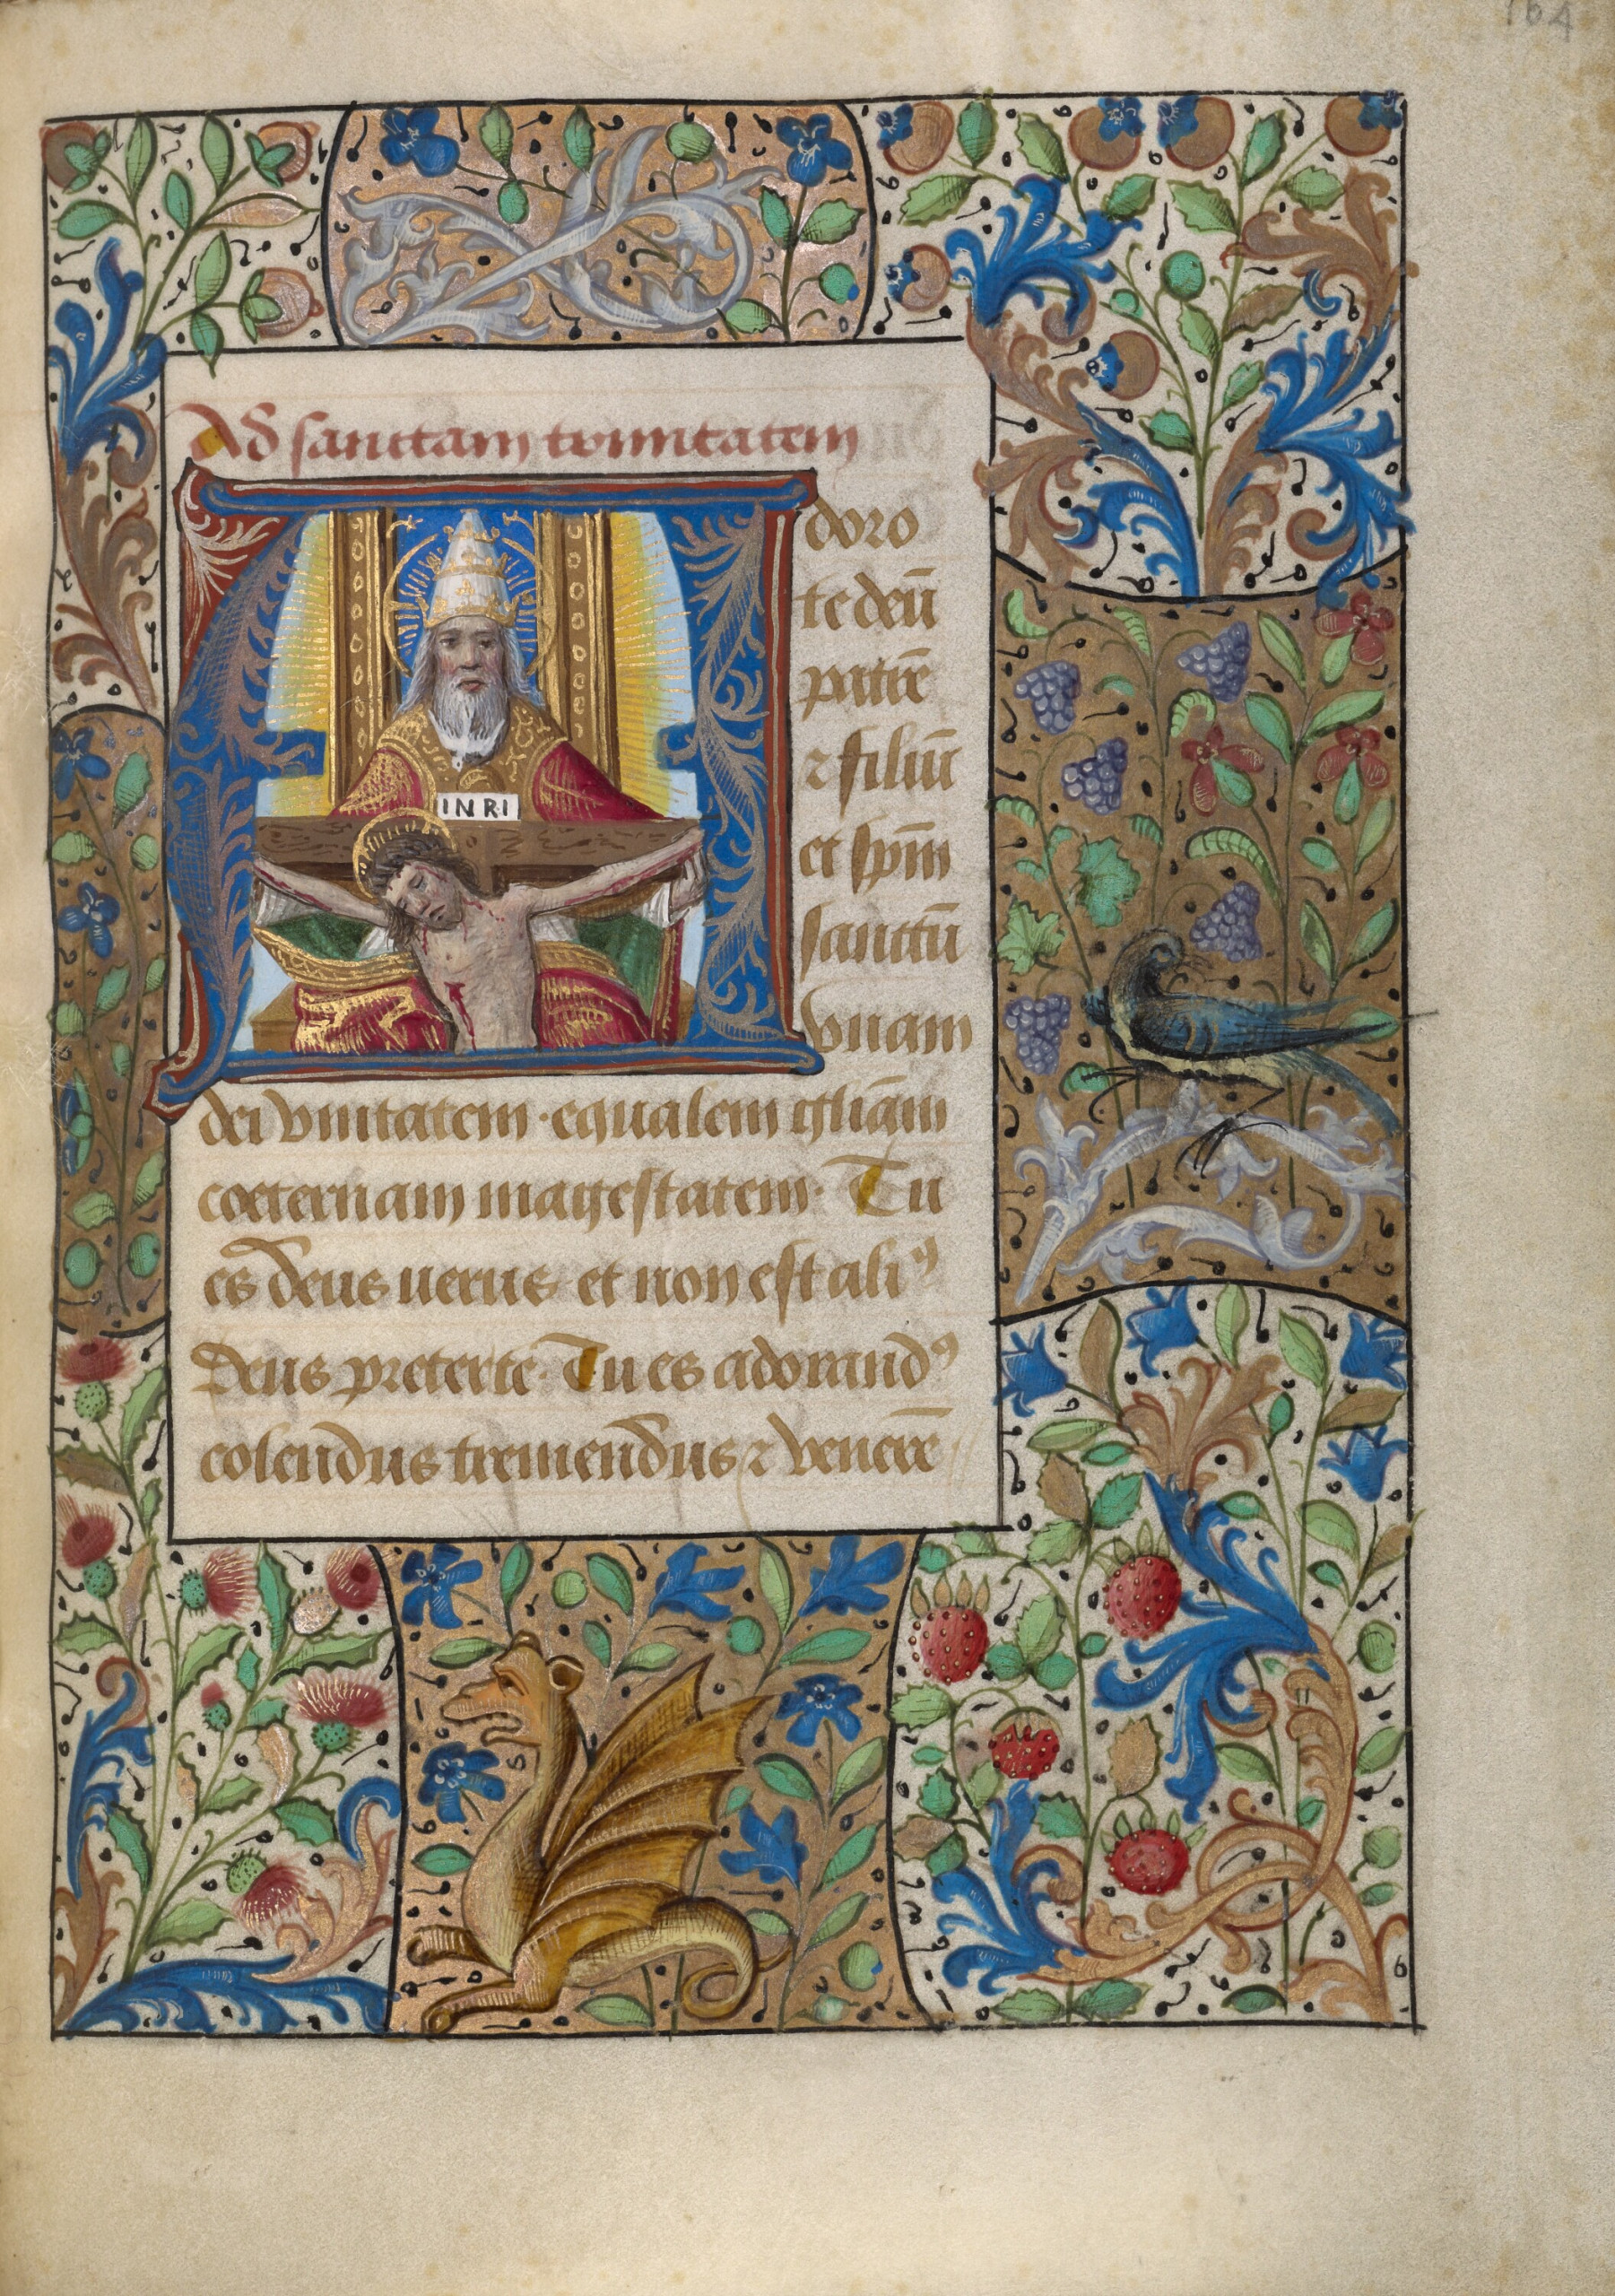 164
Ad sanctam trinitatem
INRI
Adoro
te deū
patrē
⁊ filiū
et sp̄m
sanctū
vnam
dei vnitatem · equalem gl̄iam
coeternam magestatem · Tu
es deus uerus et non est aliꝰ
deus preter te · Tu es adorandꝰ
colendus tremendus ⁊ venerē